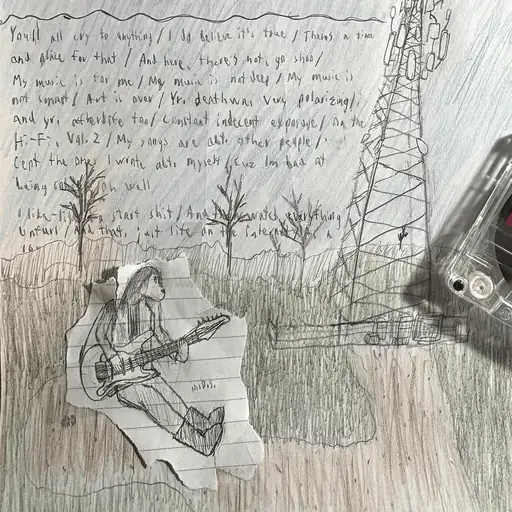 You'll all cry to anything / I do believe it's true / There's a time
and place for that / And here, there's not, go shoo /
My music is for me / My music is not deep / My music is
not smart / Art is over / Yr. death was very polarizing /
and yr. afterlife too / Constant indecent exposure / On the
Hi-Fi, Vol. 2 / My songs are abt. other people /
Cept the ones I wrote abt. myself / Cuz Im bad at
being oh well
I like to start shit / And then watch everything
unfurl / And that's just life on the internet